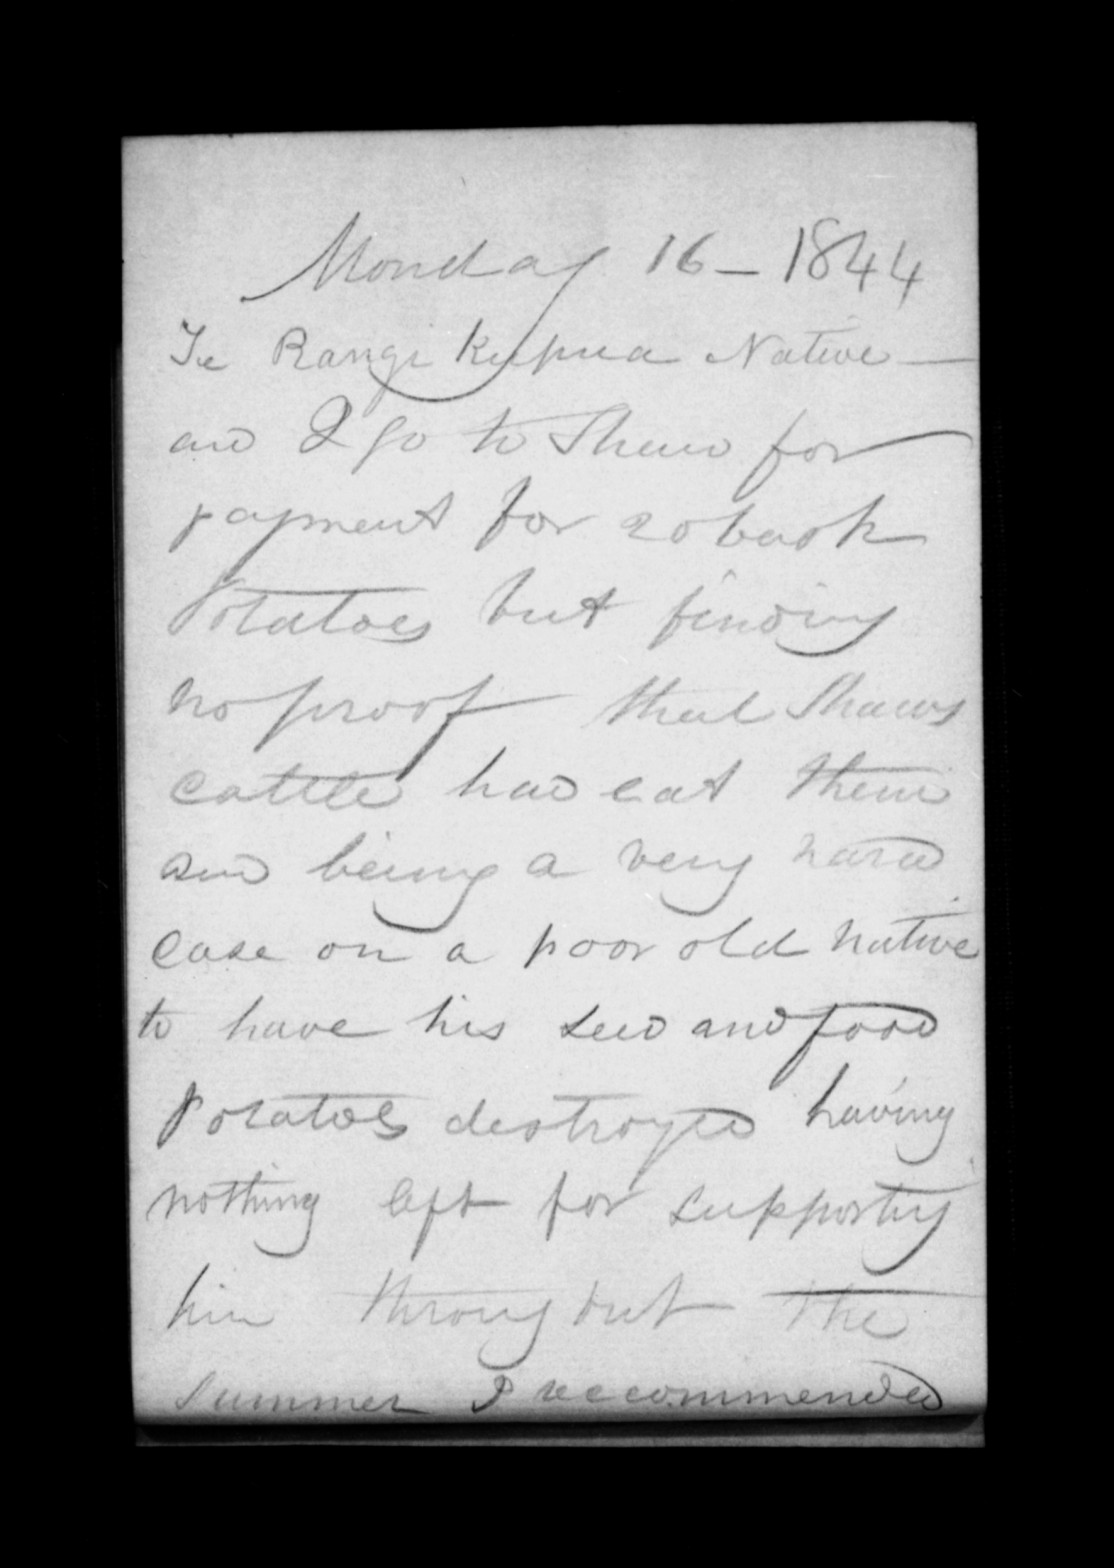 Monday 16 - 1844
Te Rangi Kupua Native -
and I go to Shaw for
payment for 20 bask
Potatoes but finding
no proof that Shaws
cattle had eat them
and being a very hard
case on a poor old native
to have his seed and food
potatoes destroyed having
nothing left for supporting
him throughout the
summer I reccommended